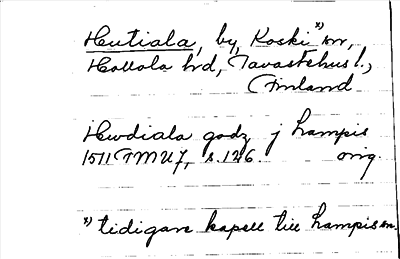 Hutiala, by, Koski x) sn,
Hollola hrd, Tavastehus l.,
Finland
Hwdiala godz j Lampis
1511 FMU 7, s. 126. orig.
x) tidigare kapell till Lampis sn.